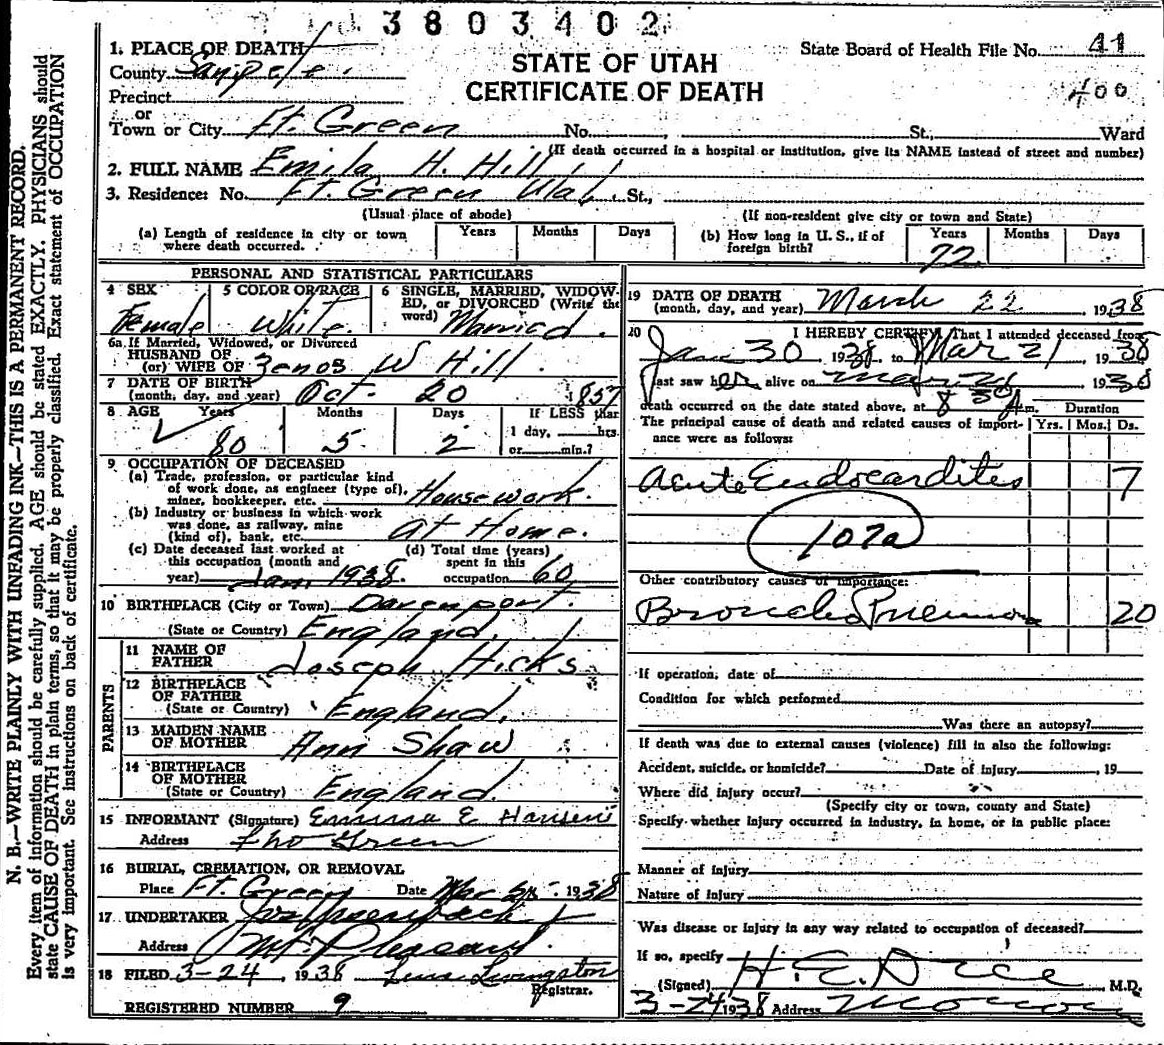 3803402
1. PLACE OF DEATH
County Sanpete.
Precinct
or
Town or City Ft. Green No. , St., Ward
(If death occurred in a hospital or institution, give its NAME instead of street and number)
STATE OF UTAH
CERTIFICATE OF DEATH
State Board of Health File No. 41
400
2. FULL NAME Emila H. Hill
3. Residence: No. Ft. Green Utah St.,
(Usual place of abode) (If non-resident give city or town and State)
(a) Length of residence in city or town where death occurred. Years Months Days
(b) How long in U. S., if of foreign birth? Years 72 Months Days
PERSONAL AND STATISTICAL PARTICULARS
4 SEX Female
5 COLOR OR RACE White
6 SINGLE, MARRIED, WIDOWED, or DIVORCED (Write the word) Married.
6a. If Married, Widowed, or Divorced
HUSBAND OF
(or) WIFE OF Zenos W Hill.
7 DATE OF BIRTH
(month, day, and year) Oct. 20 1857
8 AGE Years 80 Months 5 Days 2
If LESS than
1 day, hrs.
or min.?
9 OCCUPATION OF DECEASED
(a) Trade, profession, or particular kind
of work done, as engineer (type of),
miner, bookkeeper, etc. Housework.
(b) Industry or business in which work
was done, as railway, mine
(kind of), bank, etc. At Home.
(c) Date deceased last worked at
this occupation (month and
year) Jan. 1938.
(d) Total time (years)
spent in this
occupation 60
10 BIRTHPLACE (City or Town) Davenport.
(State or Country) England.
PARENTS
11 NAME OF
FATHER Joseph Hicks
12 BIRTHPLACE
OF FATHER
(State or Country) England.
13 MAIDEN NAME
OF MOTHER Ann Shaw
14 BIRTHPLACE
OF MOTHER
(State or Country) England.
15 INFORMANT (Signature) Emma E Hansen
Address Green
16 BURIAL, CREMATION, OR REMOVAL
Place Ft. Green Date Mar 1938
17 UNDERTAKER
Address Mt. Pleasant.
18 FILED 3-24, 1938 Livingston
Registrar.
REGISTERED NUMBER 9
19 DATE OF DEATH
(month, day, and year) March 22 1938
20 I HEREBY CERTIFY, That I attended deceased from
Jan 30 1938 to Mar 21, 1938
last saw her alive on Mar 21 1938
death occurred on the date stated above, at 8 30 A m.
The principal cause of death and related causes of importance were as follows:
Duration
Yrs. Mos. Ds.
Acute Endocardites 7
107a
Other contributory causes of importance:
Broncho Pneumon 20
If operation, date of
Condition for which performed
Was there an autopsy?
If death was due to external causes (violence) fill in also the following:
Accident, suicide, or homicide? Date of injury , 19
Where did injury occur?
(Specify city or town, county and State)
Specify whether injury occurred in industry, in home, or in public place:
Manner of injury
Nature of Injury
Was disease or injury in any way related to occupation of deceased?
If so, specify
(Signed) H. E. Dice M.D.
3-24 1938 Address Moroni
N. B.—WRITE PLAINLY WITH UNFADING INK—THIS IS A PERMANENT RECORD.
Every item of information should be carefully supplied. AGE should be stated EXACTLY. PHYSICIANS should
state CAUSE OF DEATH in plain terms, so that it may be properly classified. Exact statement of OCCUPATION
is very important. See instructions on back of certificate.